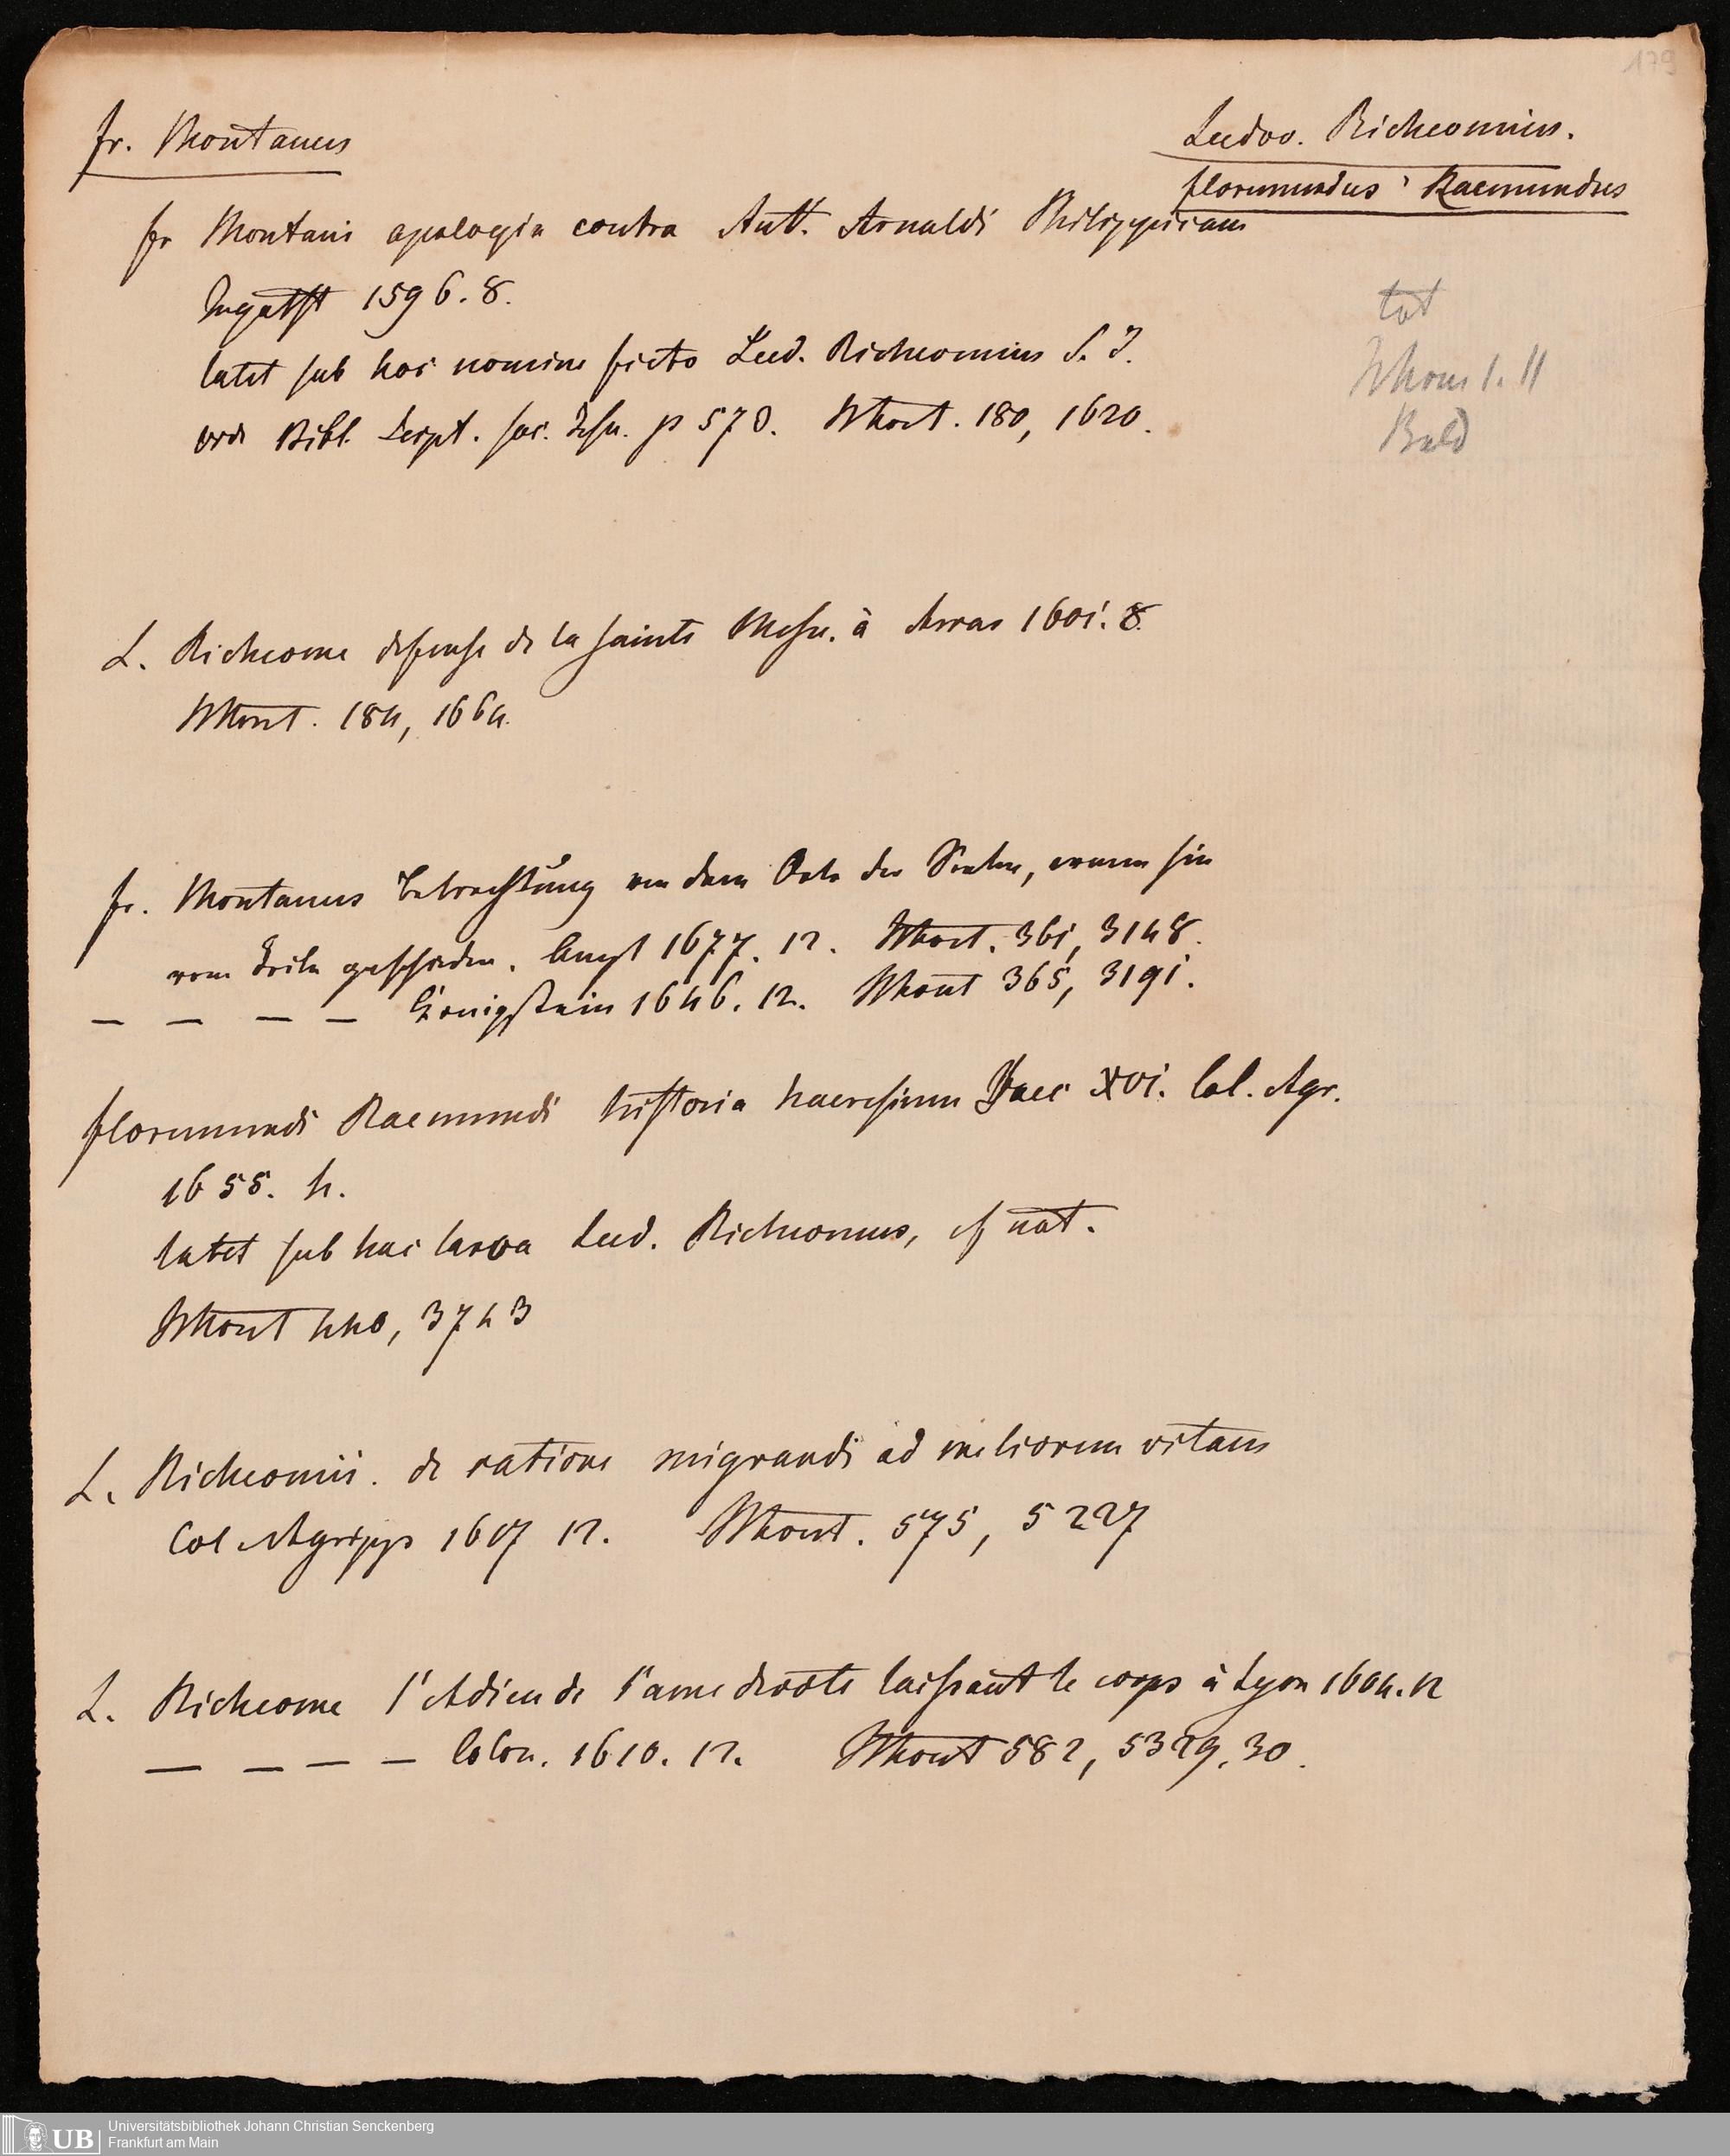 179
Fr. Montanus
Ludov. Richeomius.
Florimundus Raemundus
Fr Montani apologia contra Ant. Arnaldi Philippicam
Ingolst 1596. 8.
latet sub hoc nomine ficto Lud. Richeomius S. J.
Bibl. Script. soc. Jesu. p 570. 180, 1620.
tot
I. II
Bald
L. Richeome defense de la sainte Messe. à Arras 1601. 8.
184, 1664.
Fr. Montanus Betrachtung von dem Orte der Seelen, wenn sie
vom Leibe geschieden. Augst 1677. 12. 361, 3148.
— — — — Königstein 1646. 12. 365, 3191.
Florimundi Raemundi historia haeresium Saec XVI. Col. Agr.
1655. 4.
latet sub hac larva Lud. Richeomus, cf not.
440, 3743
L. Richeomii. de ratione migrandi ad meliorem vitam
Col Agripp 1607 12. 575, 5227
L. Richeome l'Adieu de l'ame devote laissant le corps à Lyon 1604. 12
— — — — Colon. 1610. 12. 582, 5329. 30.
UB Universitätsbibliothek Johann Christian Senckenberg
Frankfurt am Main